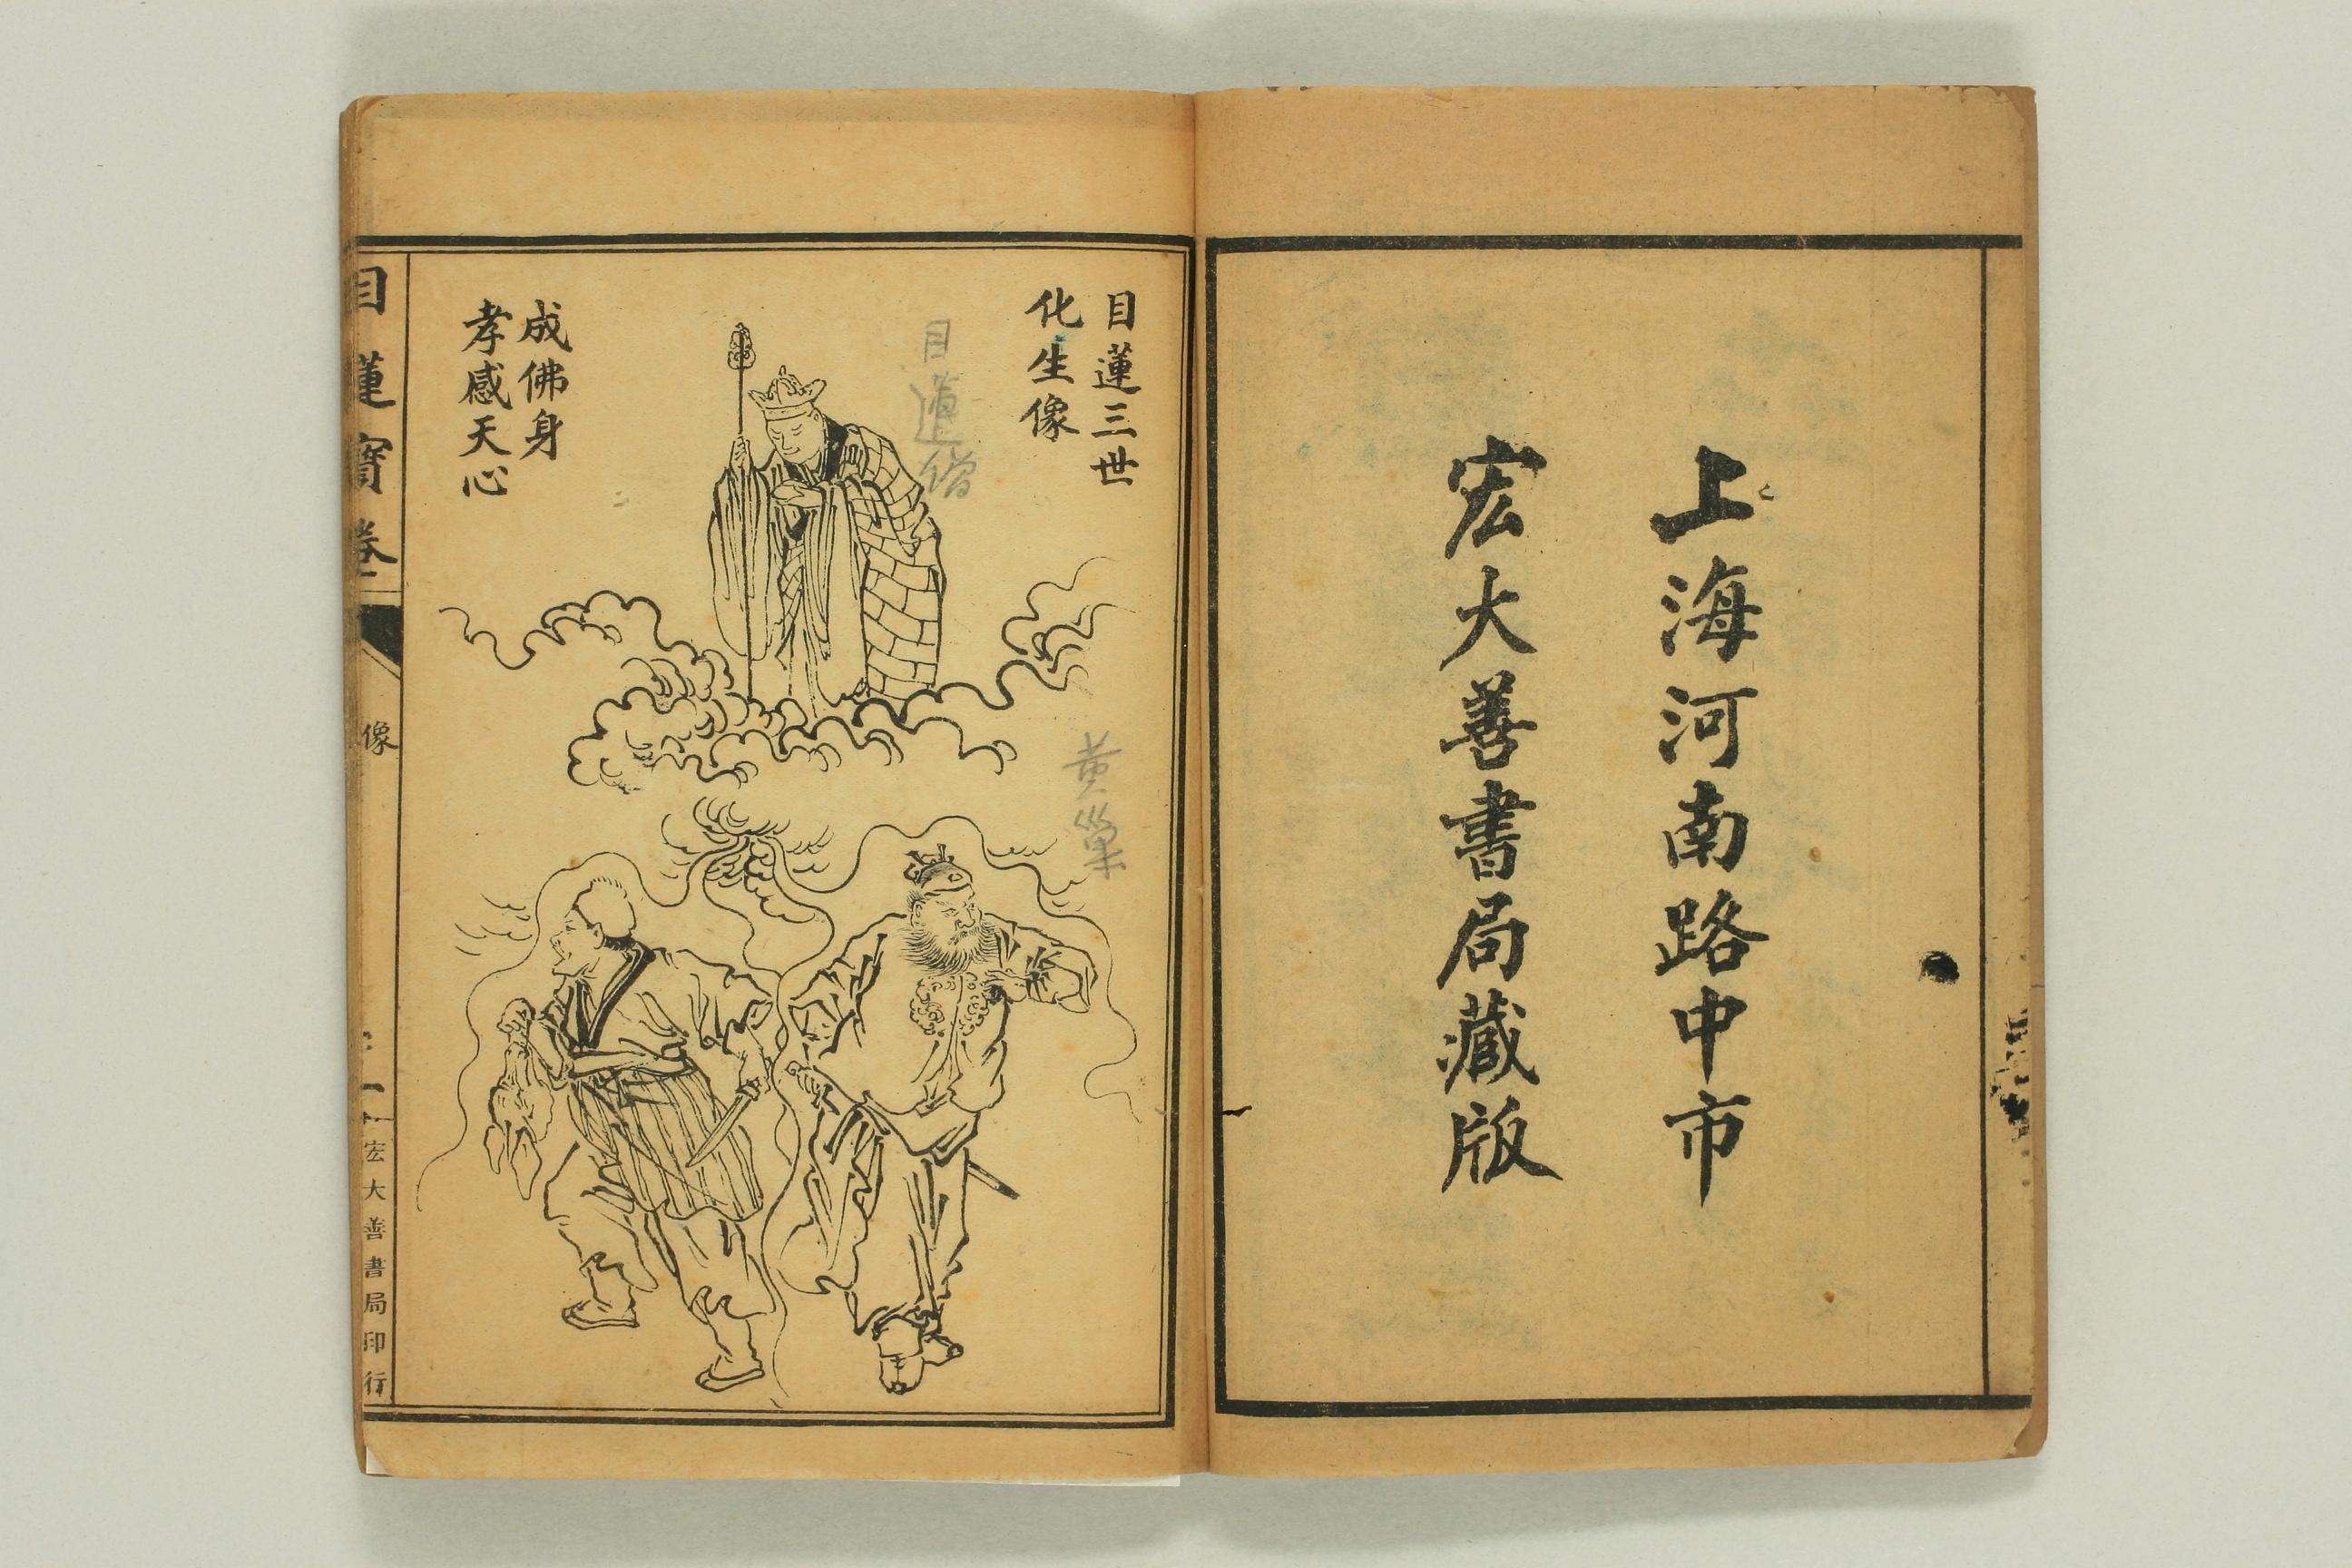 上海河南路中市
宏大善書局藏版
目蓮三世
化生像
目蓮僧
黄巢
成佛身
孝感天心
目蓮寶卷
像
宏大善書局印行